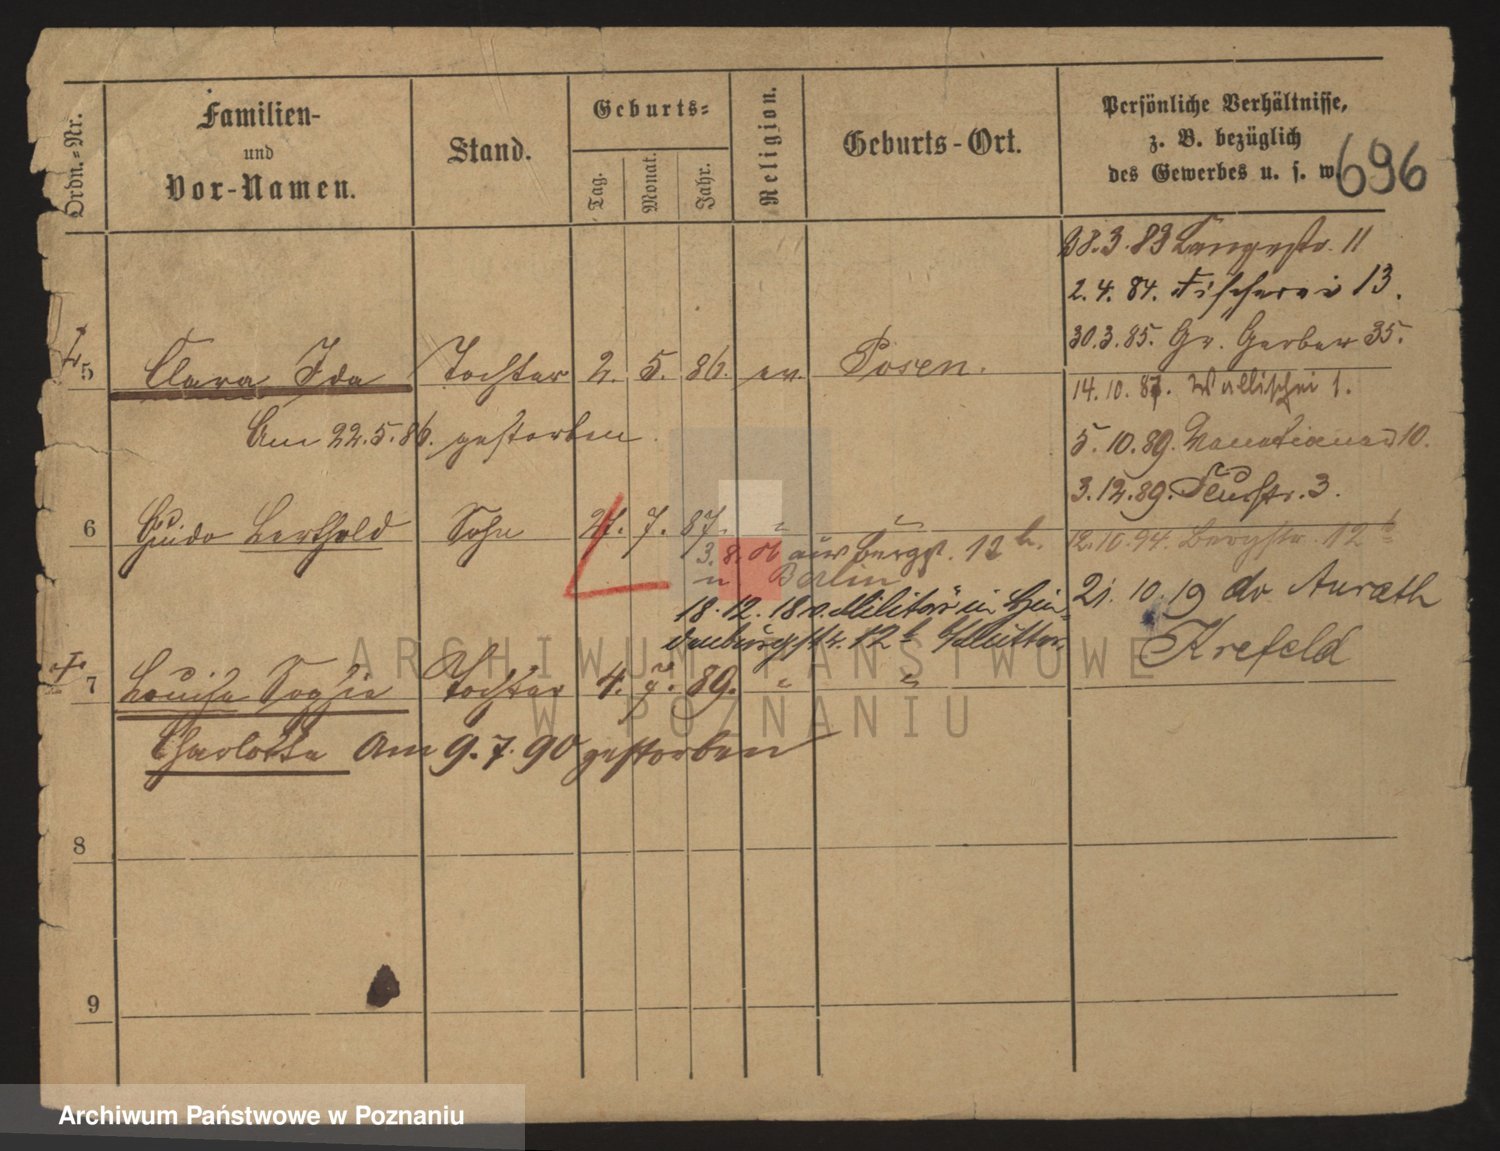 Ordn.-Nr.
Familien-
und
Vor-Namen.
Stand.
Geburts-
Tag.
Monat.
Jahr.
Religion.
Geburts-Ort.
Persönliche Verhältnisse,
z. B. bezüglich
des Gewerbes u. s. w.
696
28.3.83 Langestr. 11
2.4.84. Fischerei 13.
30.3.85. Gr. Gerber 35.
5 Clara Ida Tochter 2. 5. 86. ev. Posen.
14.10.87. Wallischei 1.
Am 22.5.86. gestorben.
5.10.89. 10.
3.12.89. 3.
6 Guido Berthold Sohn 27. 7. 87. " "
12.10.94. Bergstr. 12 b
3.8. aus Bergst. 12 b.
n Berlin
21.10.19 Anrath
Krefeld
18.12.18 v. Militär in Hin-
denburgstr. 12 b Mutter
7 Louise Sophie Tochter 4. 7. 89. " "
Charlotte Am 9.7.90 gestorben
8
9
ARCHIWUM PAŃSTWOWE
W POZNANIU
Archiwum Państwowe w Poznaniu